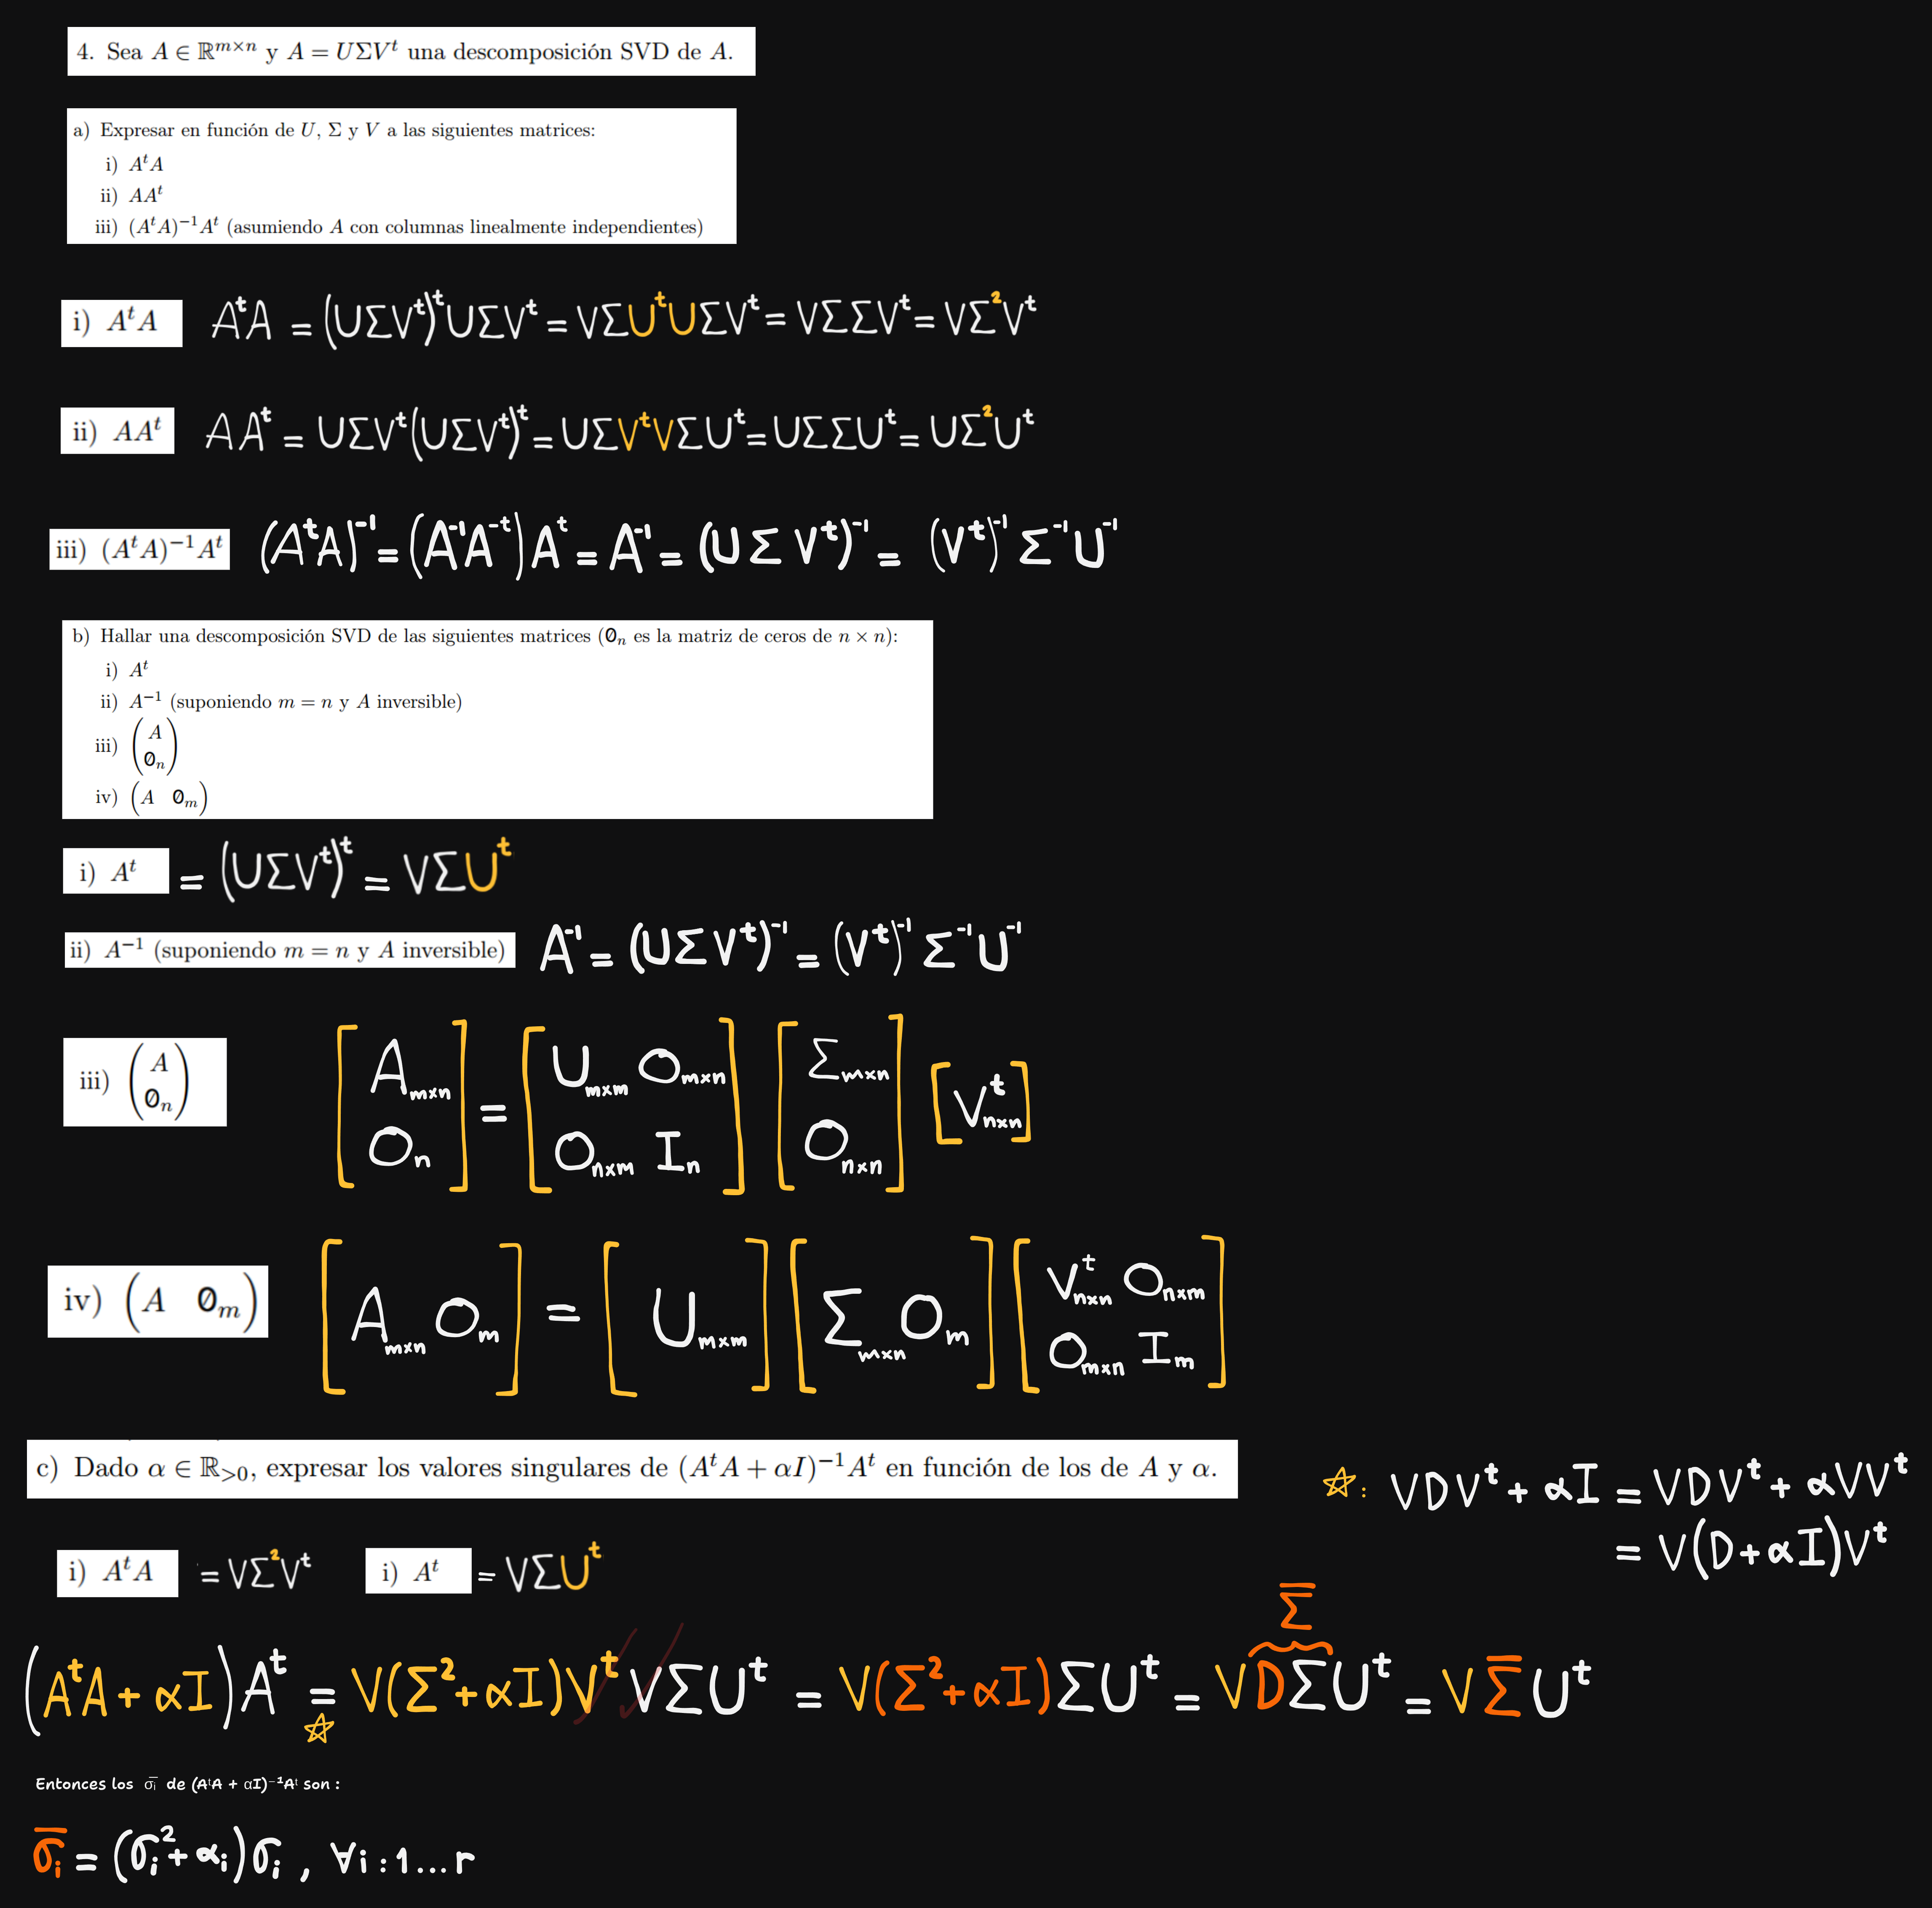 4. Sea A ∈ ℝ^{m×n} y A = UΣV^t una descomposición SVD de A.
a) Expresar en función de U, Σ y V a las siguientes matrices:
i) A^tA
ii) AA^t
iii) (A^tA)^{-1}A^t (asumiendo A con columnas linealmente independientes)
i) A^tA A^tA = (UΣV^t)^t UΣV^t = VΣU^tUΣV^t = VΣΣV^t = VΣ^2V^t
ii) AA^t AA^t = UΣV^t(UΣV^t)^t = UΣV^tVΣU^t = UΣΣU^t = UΣ^2U^t
iii) (A^tA)^{-1}A^t (A^tA)^{-1} = (A^{-1}A^{-t})A^t = A^{-1} = (UΣV^t)^{-1} = (V^t)^{-1}Σ^{-1}U^{-1}
b) Hallar una descomposición SVD de las siguientes matrices (0_n es la matriz de ceros de n × n):
i) A^t
ii) A^{-1} (suponiendo m = n y A inversible)
iii) (A
0_n)
iv) (A 0_m)
i) A^t = (UΣV^t)^t = VΣU^t
ii) A^{-1} (suponiendo m = n y A inversible) A^{-1} = (UΣV^t)^{-1} = (V^t)^{-1}Σ^{-1}U^{-1}
iii) (A [A_{m×n} = [U_{m×m} O_{m×n} [Σ_{m×n} [V^t_{n×n}]
0_n) O_n] O_{n×m} I_n] O_{n×n}]
iv) (A 0_m) [A_{m×n} O_m] = [U_{m×m}] [Σ_{m×n} O_m] [V^t_{n×n} O_{n×m}
O_{m×n} I_m]
c) Dado α ∈ ℝ_{>0}, expresar los valores singulares de (A^tA + αI)^{-1}A^t en función de los de A y α.
☆: VDV^t + αI = VDV^t + αVV^t
= V(D+αI)V^t
i) A^tA = VΣ^2V^t i) A^t = VΣU^t
Σ̄
(A^tA + αI)A^t = V(Σ^2+αI)V^tVΣU^t = V(Σ^2+αI)ΣU^t = VDΣU^t = VΣ̄U^t
☆
Entonces los σ̄_i de (A^tA + αI)^{-1}A^t son :
σ̄_i = (σ_i^2 + α_i)σ_i , ∀i : 1...r